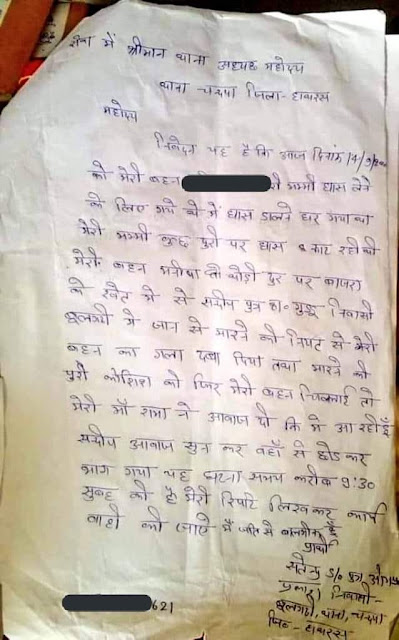 सेवा में श्रीमान थाना अध्यक्ष महोदय
थाना चन्दपा जिला - हाथरस
महोदय
निवेदन यह है कि आज दिनांक 14/9/20
को मेरी बहन री मम्मी घास लेने
के लिए गये थे में घास डालने घर गया था
मेरी मम्मी कुछ दुरी पर घास काट रही थी
मेरी बहन थोडी दुर पर बाजरा
के खेत मे से संदीप पुत्र गुड्डू निवासी
बूलगढी ने जान से मारने की नियत से मेरी
बहन का गला दबा दिया तथा मारने की
पुरी कोशिश की फिर मेरी बहन चिल्लाई तो
मेरी माँ रामा ने आवाज दी कि मे आ रही हूँ
संदीप आवाज सुन कर वहाँ से छोड कर
भाग गया यह घटना समय करीब 9:30
सुबह की है मेरी रिपोर्ट लिखकर कार्य
वाही की जाऐ मैं जाति से बाल्मीकि हूँ
प्रार्थी
सतेन्द्र S/o पुत्र ओम
प्रकाश निवासी -
बूलगढी, थाना, चन्दपा
जि० - हाथरस
621